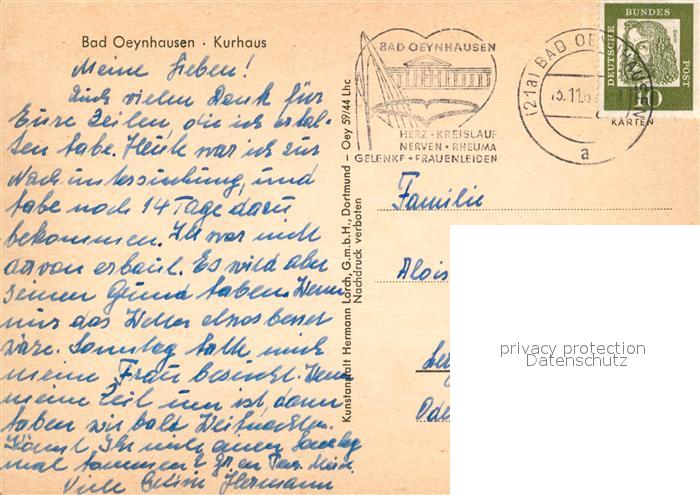 Bad Oeynhausen · Kurhaus
Meine Lieben!
Auch vielen Dank für
Eure Zeilen, die ich erhal-
ten habe. Heute war ich zur
Nachuntersuchung, und
habe noch 14 Tage dazu
bekommen. Ich war nicht
davon erbaut. Es wird aber
seinen Grund haben. Wenn
nur das Wetter etwas besser
wäre. Sonntag hatte mich
meine Frau besucht. Wenn
meine Zeit um ist, dann
haben wir bald Weihnachten.
Könnt Ihr mich einen Sonntag
mal kommen?
Viele Hermann
Kunstanstalt Hermann Lorch, G.m.b.H., Dortmund – Oey 59/44 Lhc
Nachdruck verboten
BAD OEYNHAUSEN
HERZ · KREISLAUF
NERVEN · RHEUMA
GELENKE · FRAUENLEIDEN
(21a) BAD OEYNHAUSEN
a
DEUTSCHE BUNDES POST
10
KARTEN
Familie
Alois
privacy protection
Datenschutz